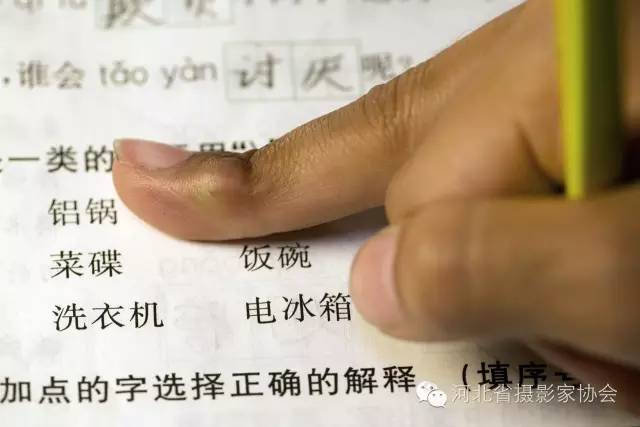 ,谁会 tǎo yàn 讨厌呢?
一类的 用"
铝锅
菜碟 饭碗
洗衣机 电冰箱
加点的字选择正确的解释 (填序号
河北省摄影家协会